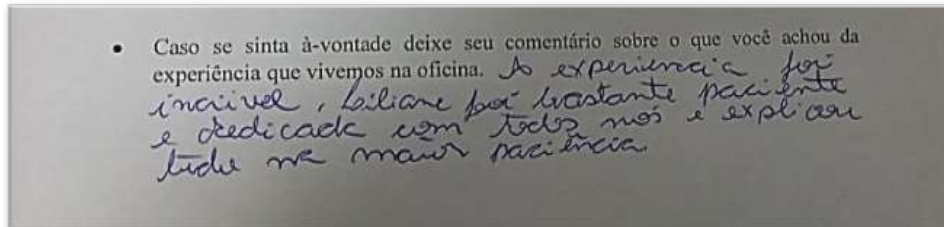 • Caso se sinta à-vontade deixe seu comentário sobre o que você achou da
experiência que vivemos na oficina. A experiencia foi
incrivel, Liliane foi bastante paciente
e dedicada com todos nós e explicou
tudo na maior paciência